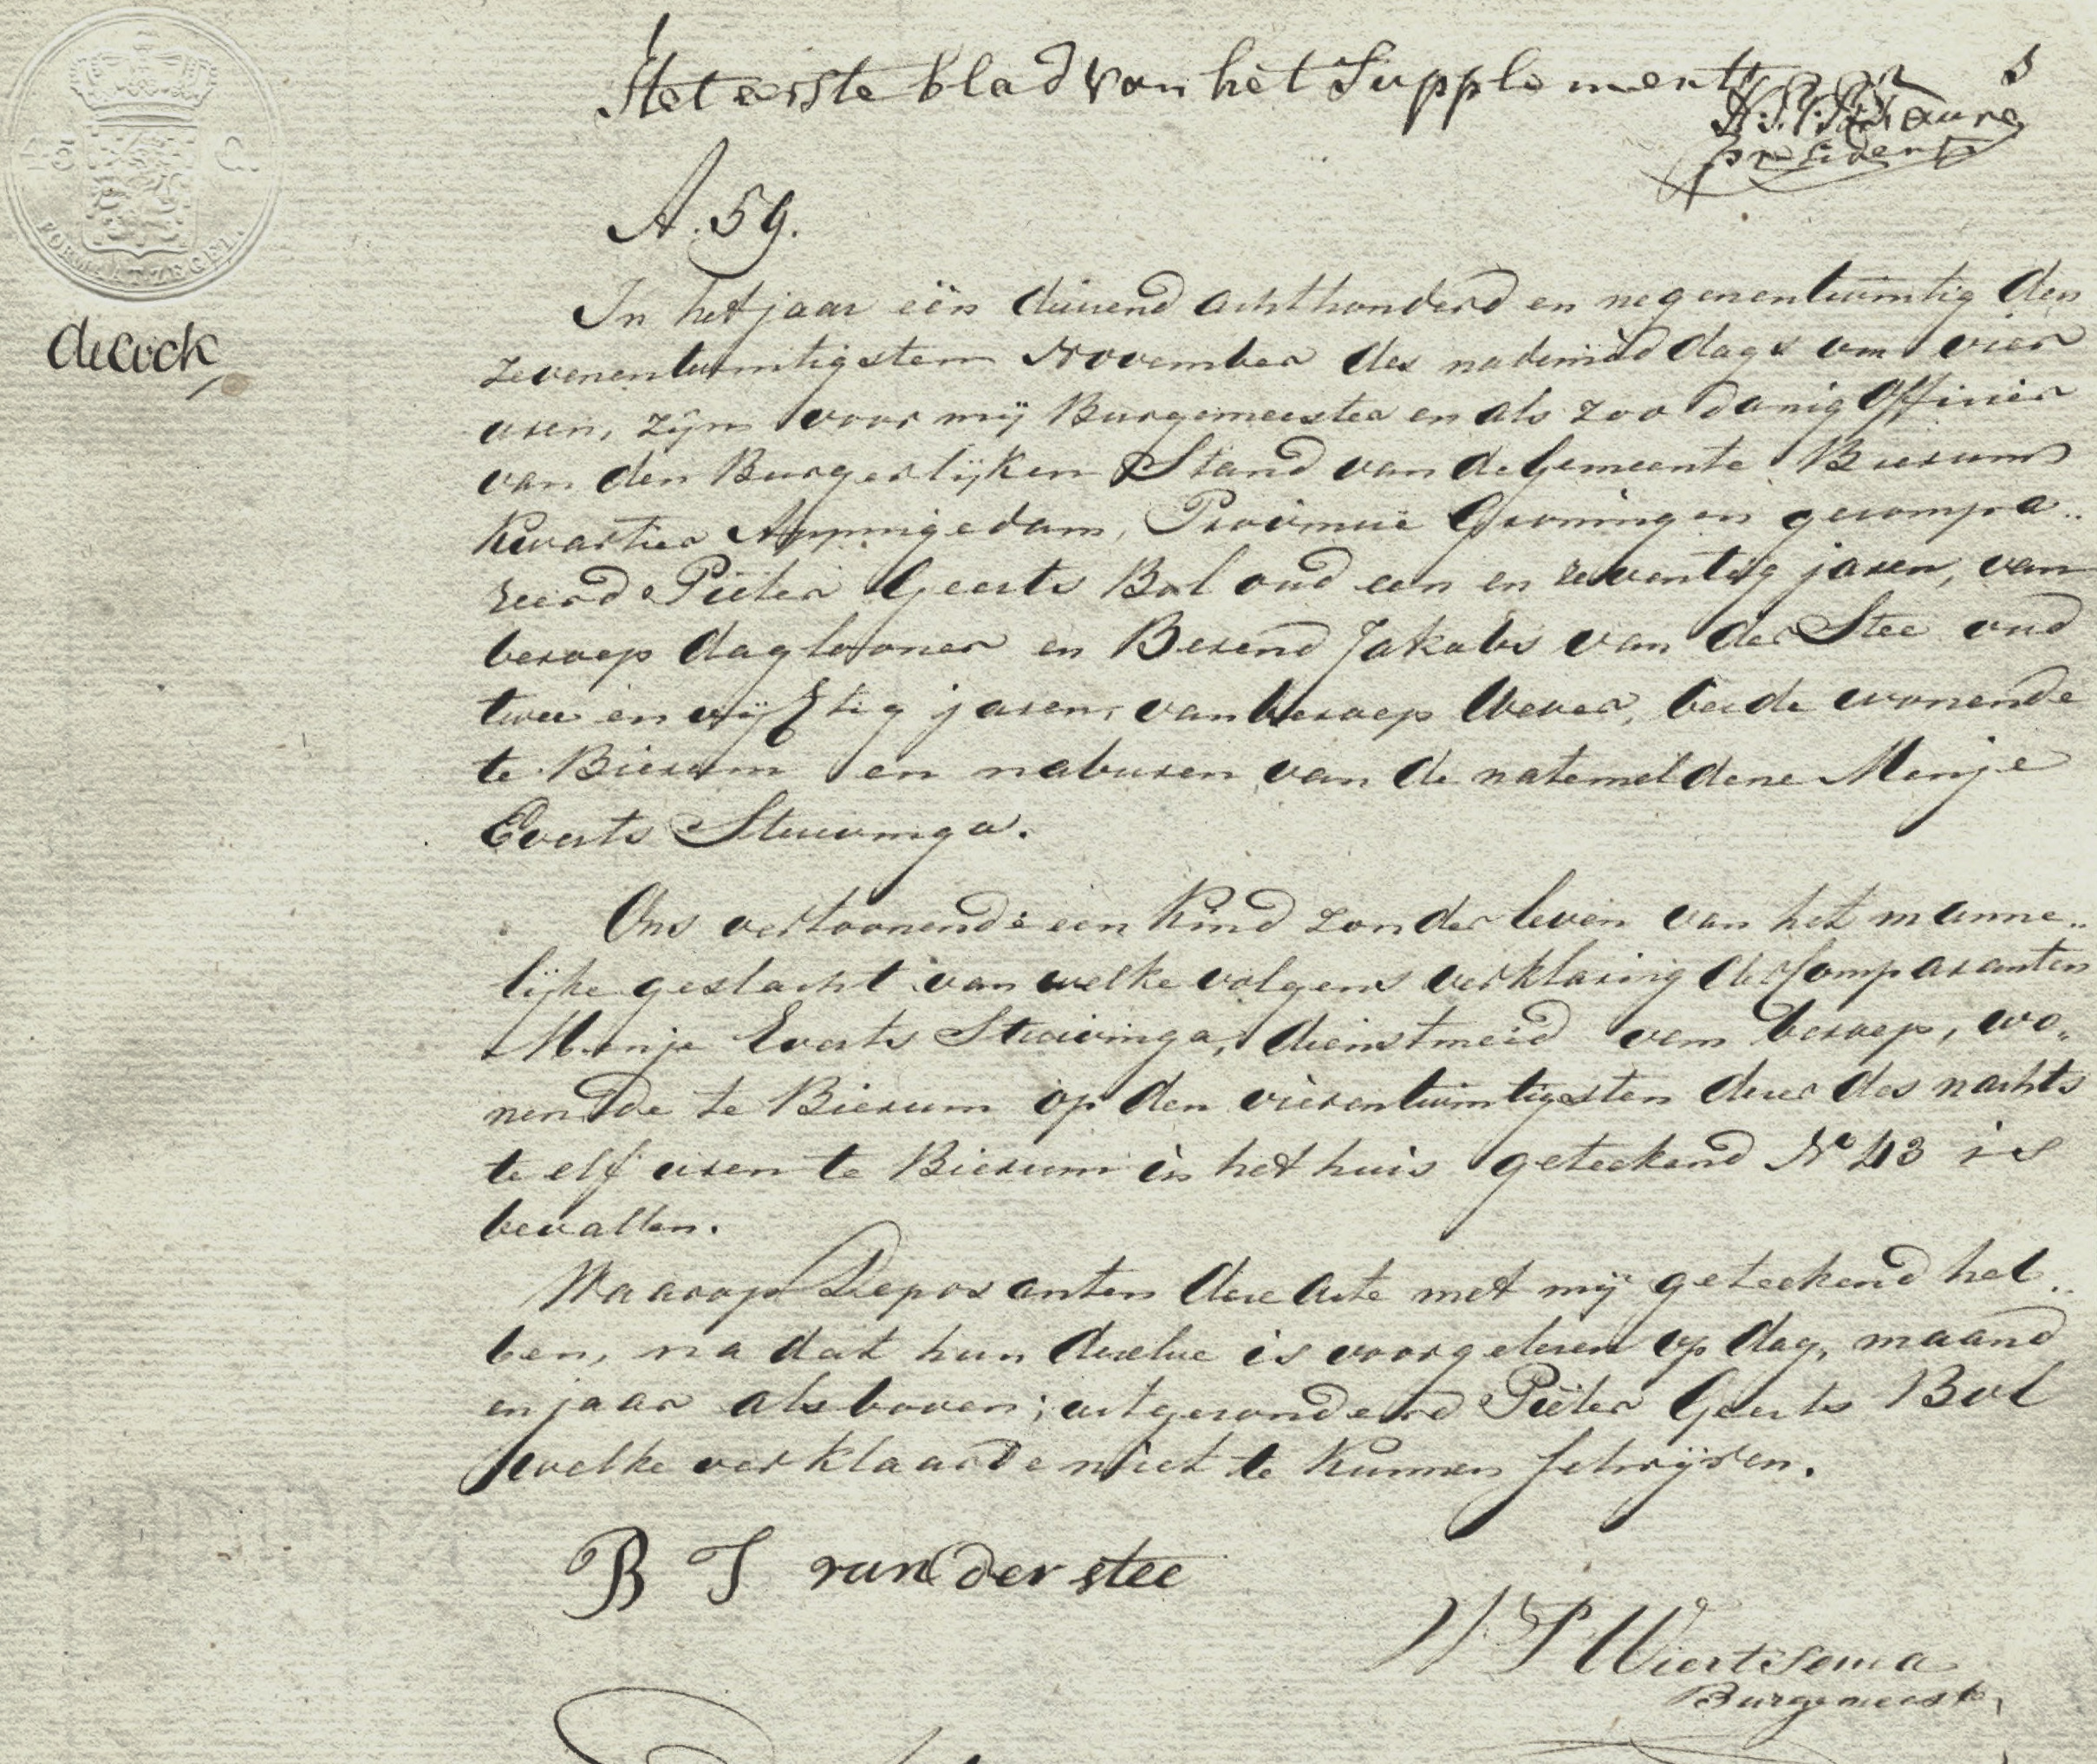 Het eerste blad van het Supplement
president
A. 59.
25 C.
FORMAATZEGEL.
decock
In het jaar één duizend achthonderd en negenentwintig den
zevenentwintigsten November des nademiddags om vier
uren, zijn voor mij Burgemeester en als zoodanig Officier
van den Burgerlijken Stand van de Gemeente Bierum
Kwartier Appingedam, Provincie Groningen gecompa..
reerd Pieter Geerts Bol oud een en zeventig jaren, van
beroep daglooner en Berend Jakobs van der Stee oud
twee en vijftig jaren, van beroep Wever, beide wonende
te Bierum en naburen van de natemeldene Menje
Everts Stuivinga.
Ons vertoonende een Kind zonder leven van het manne..
lijke geslacht van welke volgens verklaring der Comparanten
Menje Everts Stuivinga, dienstmeid van beroep, wo..
nende te Bierum op den vierentwintigsten dezer des nachts
te elf uren te Bierum in het huis geteekend No 43 is
bevallen.
Waarop Deposanten deze Acte met mij geteekend heb..
ben, na dat hun dezelve is voorgelezen op dag, maand
en jaar als boven; uitgezonderd Pieter Geerts Bol
welke verklaarde niet te Kunnen schrijven.
B J van der stee
Wiertsema
Burgemeester